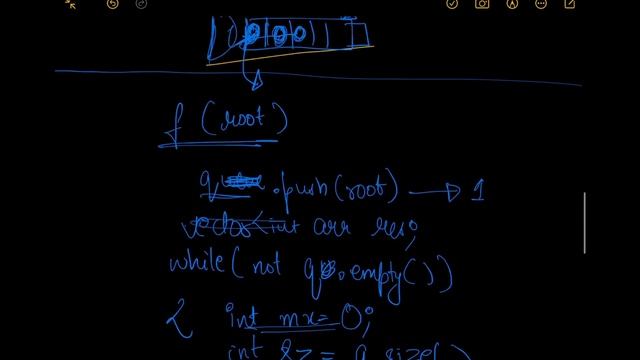 f (root)
q.push(root) → 1
arr res;
while( not q.empty())
{ int mx= 0;
int sz = q.size( )